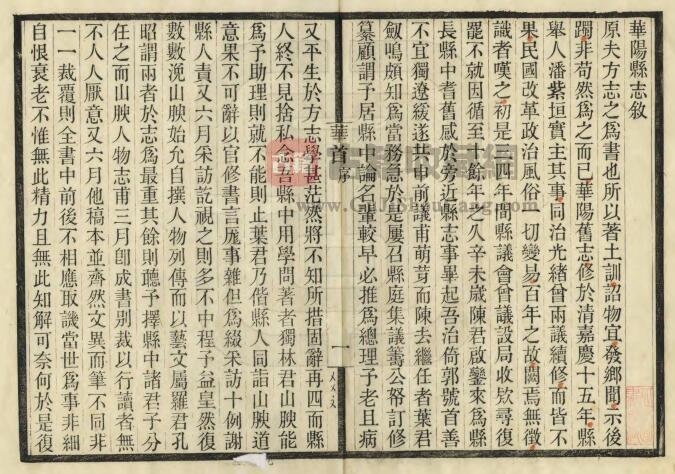 華陽縣志敘
原夫方志之為書也所以著土訓詔物宜發鄉聞示後
躅非苟然為之而已華陽舊志修於清嘉慶十五年縣
舉人潘紫垣實主其事同治光緒曾兩議續修而皆不
果民國改革政治風俗一切變易百年之故闕焉無徵
識者嘆之初是十四年間縣議會曾議設局收欵尋復
罷不就因循至十餘年之久辛未歲陳君啟鑾來為縣
長縣中耆舊感於旁近縣志事畢起吾治倚郭號首善
不宜獨遼緩遂共申前議甫萌芽而陳去繼任者葉君
劔鳴頗知為當務急於是屢召縣庭集議籌公帑訂修
纂顧謂予居縣中論名輩較早必推為總理予老且病
華首
序
一
又平生於方志學甚茫然將不知所措固辭再四而縣
人終不見捨私念吾縣中用學問著者獨林君山腴能
為予助理則就不能則止葉君乃偕縣人同詣山腴道
意果不可辭以官修書言厖事雜但為綴采訪十例謝
縣人責又六月采訪訖視之則多不中程予益皇然復
數數浼山腴始允自撰人物列傳而以藝文屬羅君孔
昭謂兩者於志為最重其餘則聽予擇縣中諸君子分
任之而山腴人物志甫三月卽成書別裁以行讀者無
不人人厭意又六月他稿本並齊然文異而筆不同非
一一裁覆則全書中前後不相應取譏當世為事非細
自恨衰老不惟無此精力且無此知解可奈何於是復